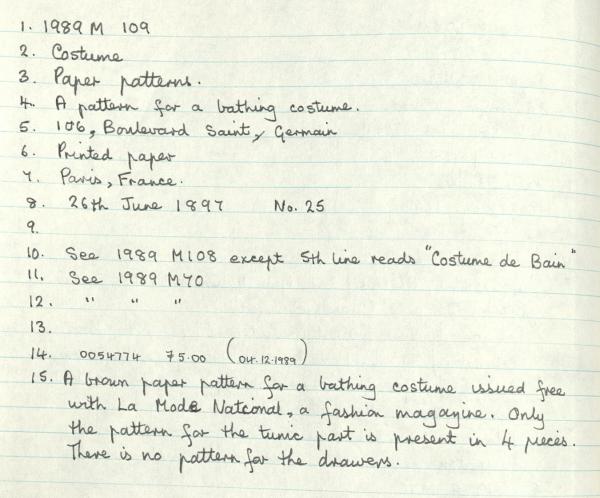 1. 1989 M 109
2. Costume
3. Paper patterns.
4. A pattern for a bathing costume.
5. 106, Boulevard Saint, Germain
6. Printed paper
7. Paris, France.
8. 26th June 1897 No. 25
9.
10. See 1989 M108 except 5th line reads "Costume de Bain"
11. See 1989 M70
12. " " "
13.
14. 0054774 75.00 (04.12.1989)
15. A brown paper pattern for a bathing costume issued free
with La Mode National, a fashion magazine. Only
the pattern for the tunic part is present in 4 pieces.
There is no pattern for the drawers.